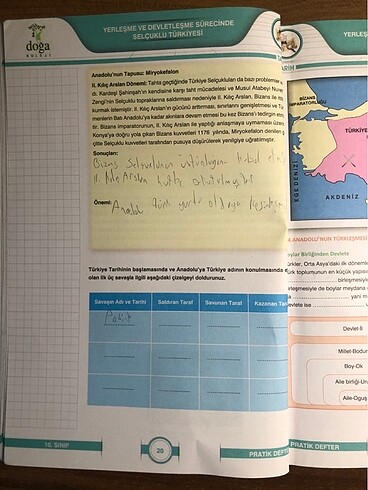 doğa
KOLEJİ
YERLEŞME VE DEVLETLEŞME SÜRECİNDE
SELÇUKLU TÜRKİYESİ
Anadolu'nun Tapusu: Miryokefalon
II. Kılıç Arslan Dönemi: Tahta geçtiğinde Türkiye Selçukluları da bazı problemler
dı. Kardeşi Şahinşah'ın kendisine karşı taht mücadelesi ve Musul Atabeyi Nure
Zengi'nin Selçuklu topraklarına saldırması nedeniyle II. Kılıç Arslan, Bizans ile
kurmak istemiştir. II. Kılıç Arslan'ın gücünü artırması, sınırlarını genişletmesi ve
menlerin Batı Anadolu'ya kadar akınlara devam etmesi bu kez Bizans'ı tedirgin
tir. Bizans imparatorunun, II. Kılıç Arslan ile yaptığı anlaşmaya uymaması üzeri
Konya'ya doğru yola çıkan Bizans kuvvetleri 1176 yılında, Miryokefalon denilen
çitte Selçuklu kuvvetleri tarafından pusuya düşürülerek yenilgiye uğratılmıştır.
Sonuçları:
Bizans Selçukunun üstünlüğünü kabul
II. Kılıç Arslan
Önemi:
Anadolu Türk yurdu olduğu
Türkiye Tarihinin başlamasında ve Anadolu'ya Türkiye adının konulmasında
olan ilk üç savaşla ilgili aşağıdaki çizelgeyi doldurunuz.
Savaşın Adı ve Tarihi Saldıran Taraf Savunan Taraf Kazanan Taraf
10. SINIF
20
PRATİK DEFTER
YERLEŞ
BİZANS
İMPARATORLUĞU
TÜRKİYE
EGE DENİZİ
AKDENİZ
ANADOLU'NUN TÜRKLEŞMESİ
Boylar Birliğinden Devlete
ürkler, Orta Asya'daki ilk dönemle
Türk toplumunun en küçük yapısı
birleşmesiy
irleşmesiyle de boylar meydana
yani m
evlete ise
Devlet-İl
Millet-Bodun
Boy-Ok
Aile birliği-Uru
Aile-Oguş
PRATİK DEFTER